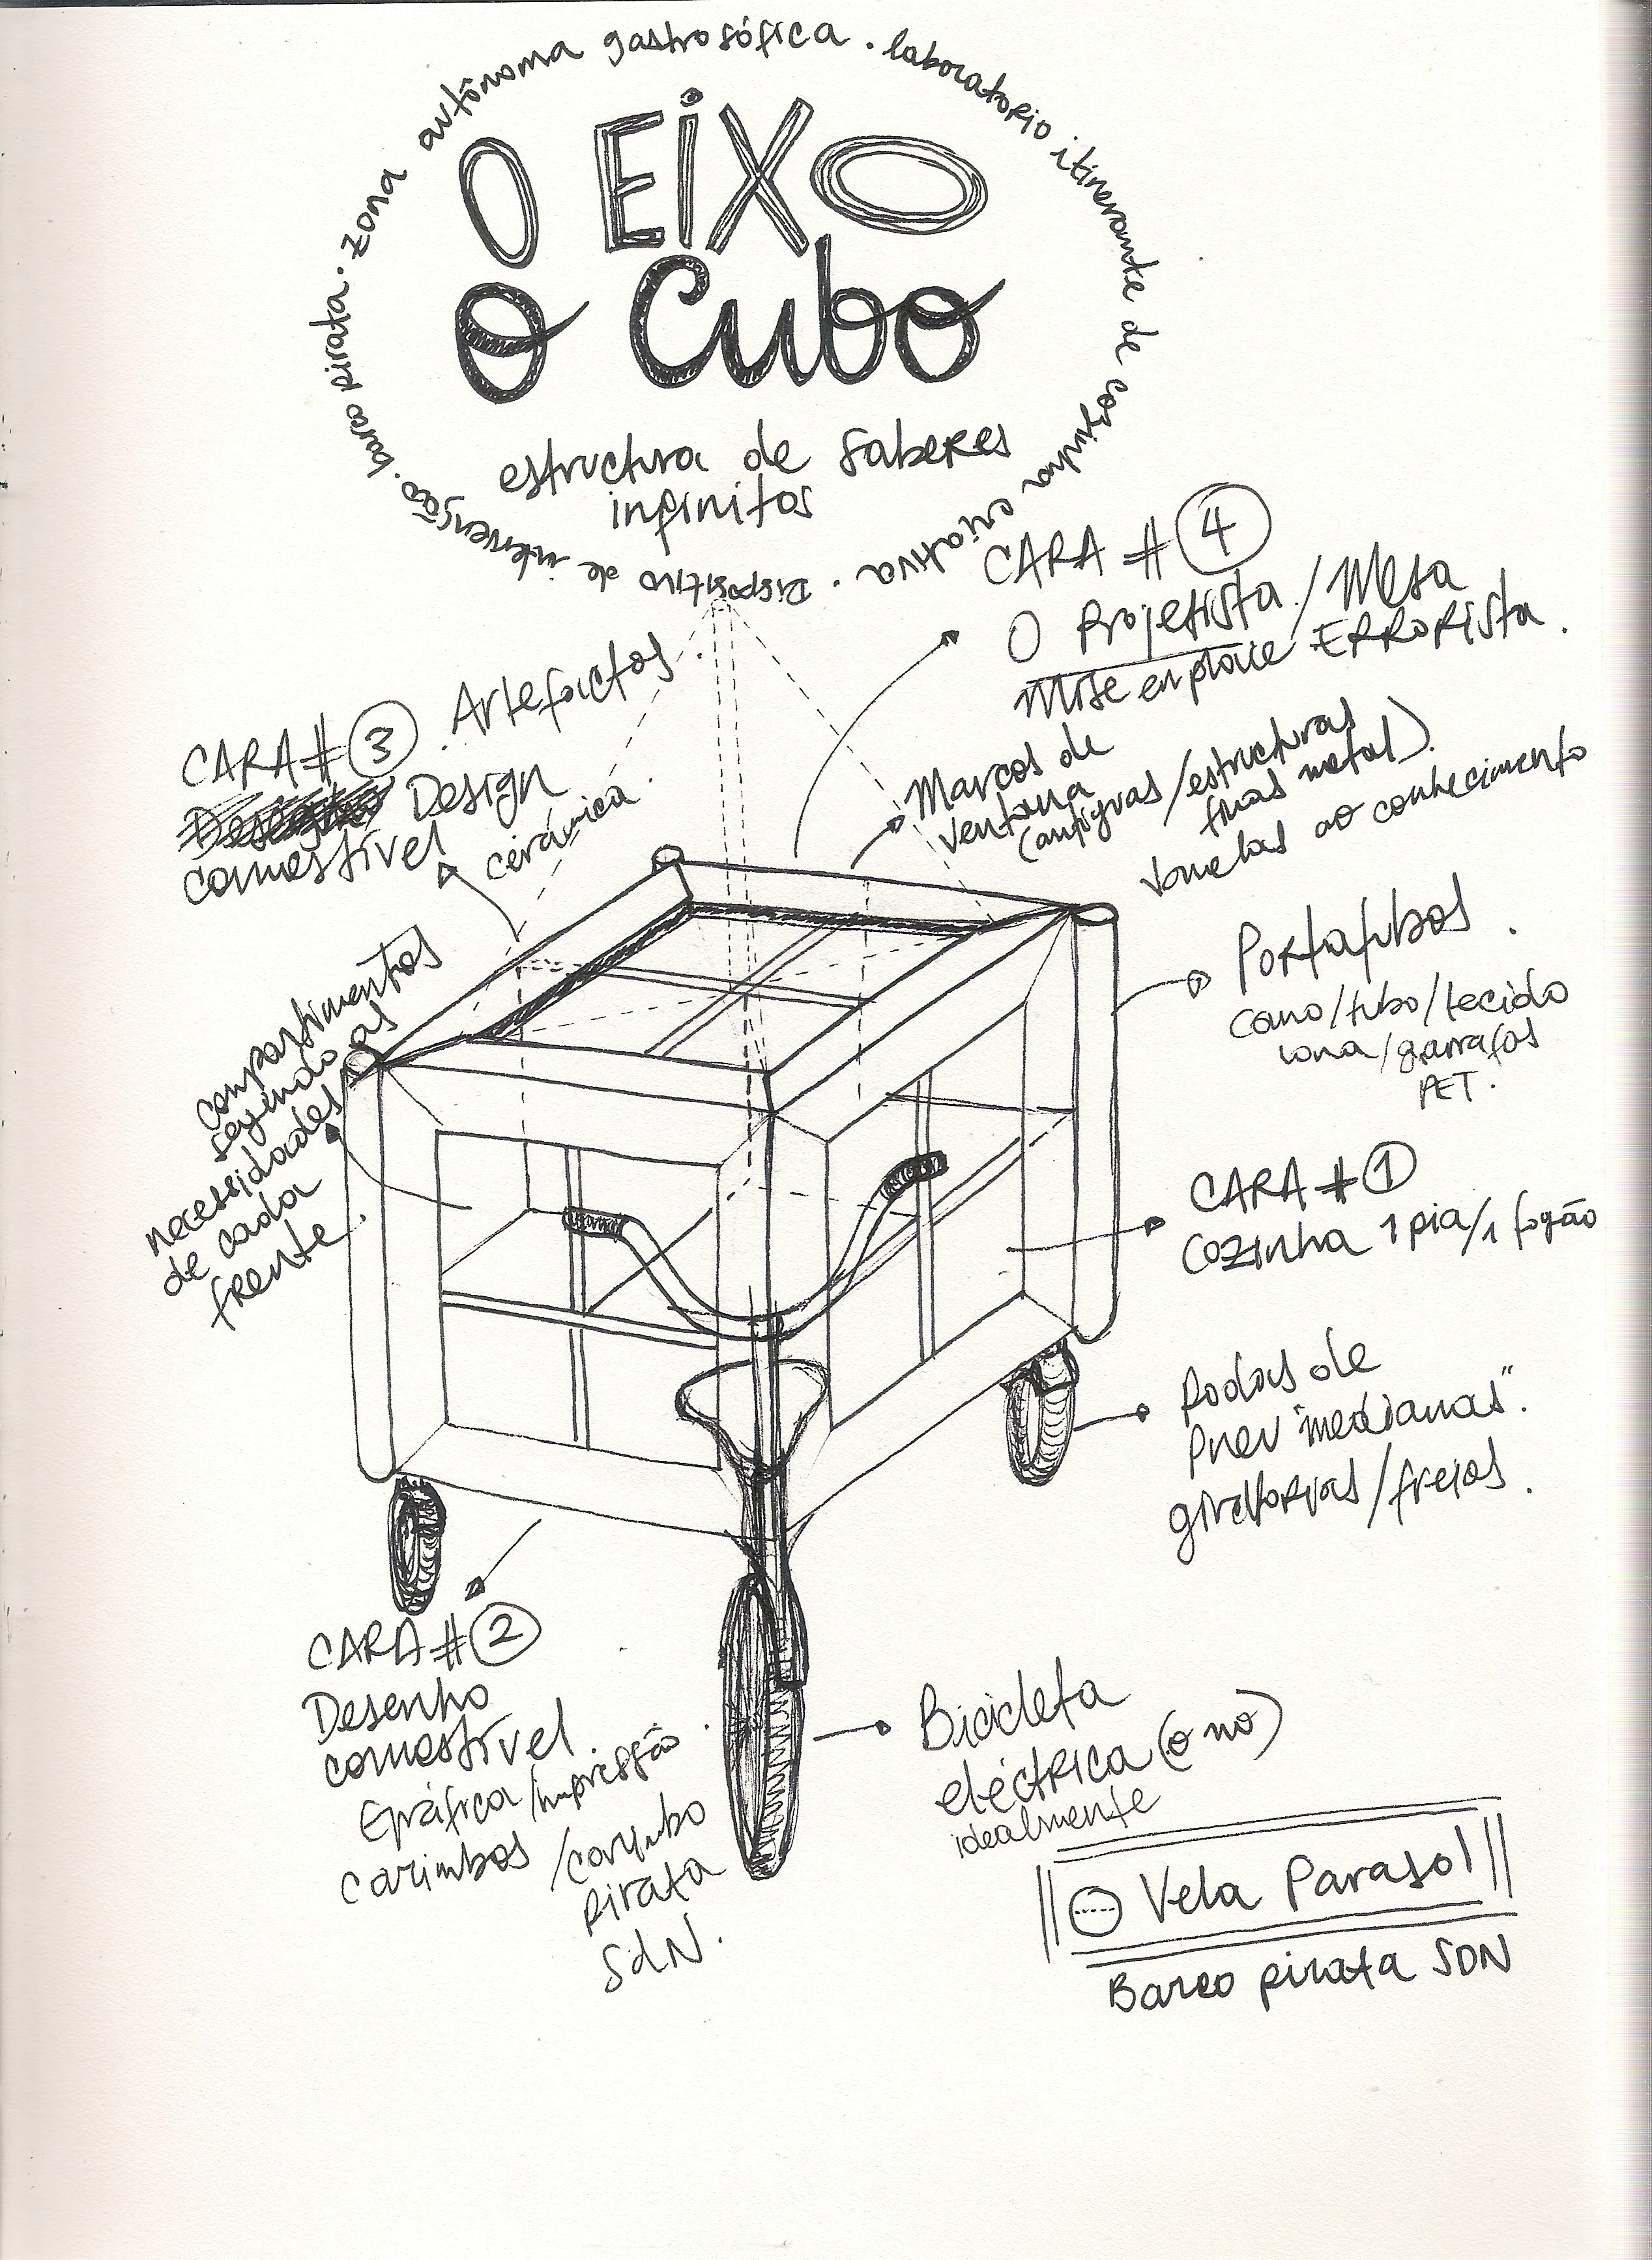 zona autônoma gastrosófica . laboratorio itinerante de cozinha criativa . Dispositivo de intervenção . barco pirata .
O EiXO
O Cubo
estructura de saberes
infinitos
CARA # 4
O Projetista / Mesa
Mise en place ERRORista .
CARA # 3 . Artefactos .
Design
comestível cerámica .
Marcos de
ventana
(antiguas / estructuras
finas metal) .
janelas ao conhecimento
Portatubos .
cano / tubo / tecido
lona / garrafas
PET .
compartimentos
segundo as
necessidades
de cada
frente .
CARA # 1
Cozinha 1 pia / 1 fogão
Rodas de
Pneu "medianas" .
giratorias / freios .
CARA # 2
Desenho
comestível .
Gráfica / impressão .
carimbos / carimbo
pirata
SdN .
Bicicleta
eléctrica (o no)
idealmente
Vela Parasol
Barco pirata SDN